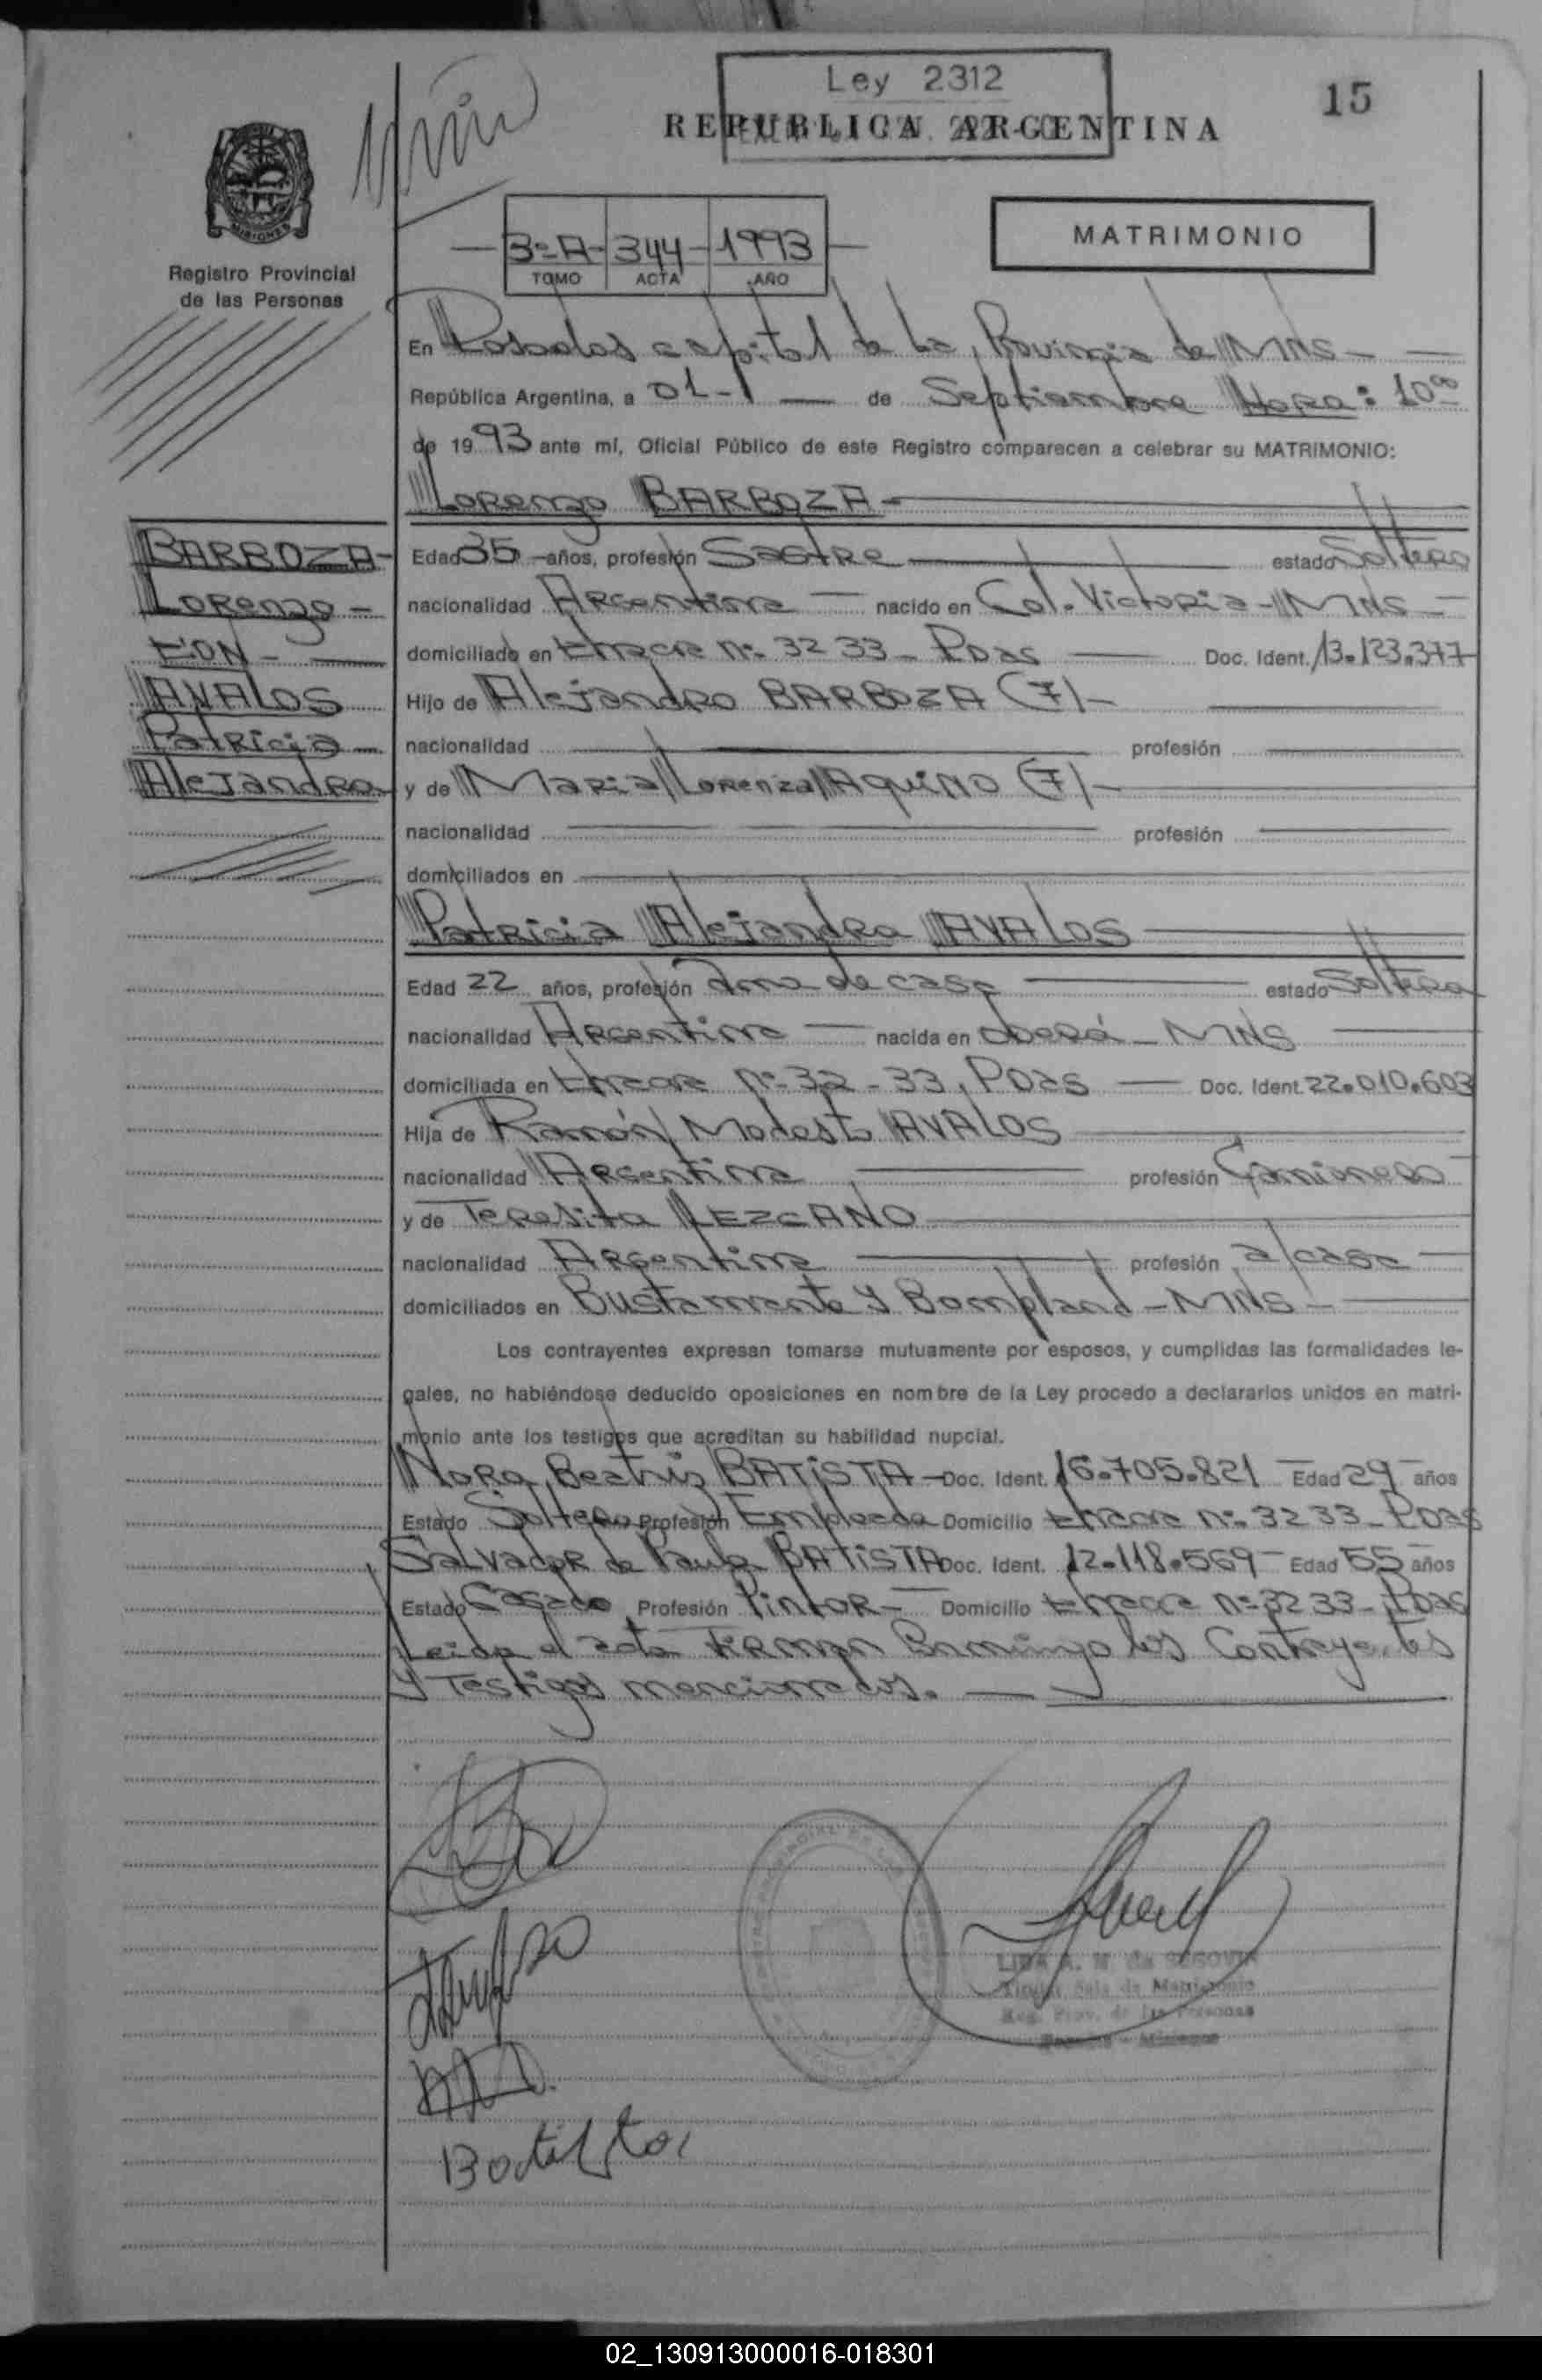 Ley 2312
15
REPUBLICA ARGENTINA
MATRIMONIO
3º-A- 344- 1993
TOMO ACTA AÑO
MISIONES
Registro Provincial
de las Personas
En Posadas capital de la Provincia de MNS
República Argentina, a 01- de Septiembre Hora: 10oo
de 1993 ante mí, Oficial Público de este Registro comparecen a celebrar su MATRIMONIO:
Lorenzo BARBOZA-
BARBOZA-
Lorenzo-
CON-
AVALOS
Patricia
Alejandra
Edad 35 años, profesión Sastre estado Soltero
nacionalidad Argentina nacido en Col. Victoria- MNS
domiciliado en Chacra nº 32 33- Pdas Doc. Ident. 13.123.377
Hijo de Alejandro BARBOZA (F)-
nacionalidad profesión
y de Maria Lorenza Aquino (F)-
nacionalidad profesión
domiciliados en
Patricia Alejandra AVALOS
Edad 22 años, profesión Ama de casa estado Soltera
nacionalidad Argentina nacida en Oberá- MNS
domiciliada en Chacra nº 32-33, Pdas Doc. Ident. 22.010.603
Hija de Ramón Modesto AVALOS
nacionalidad Argentina profesión Camionero
y de Teresita LEZCANO
nacionalidad Argentina profesión a/casa
domiciliados en Bustamante y Bompland-MNS-
Los contrayentes expresan tomarse mutuamente por esposos, y cumplidas las formalidades le-
gales, no habiéndose deducido oposiciones en nombre de la Ley procedo a declararlos unidos en matri-
monio ante los testigos que acreditan su habilidad nupcial.
Nora Beatriz BATISTA-Doc. Ident. 16.705.821 Edad 29 años
Estado Soltera Profesión Empleada Domicilio Chacra nº 32 33- Pdas
Salvador de Paula BATISTA Doc. Ident. 12.118.569- Edad 55 años
Estado Casado Profesión Pintor- Domicilio Chacra nº 32 33- Pdas
Leida el acta firman conmigo los Contrayentes
y Testigos mencionados.
LIDA A. M de SEGOVIA
Titular Sala de Matrimonio
Reg. Prov. de las Personas
Posadas - Misiones
Batista
02_130913000016-018301